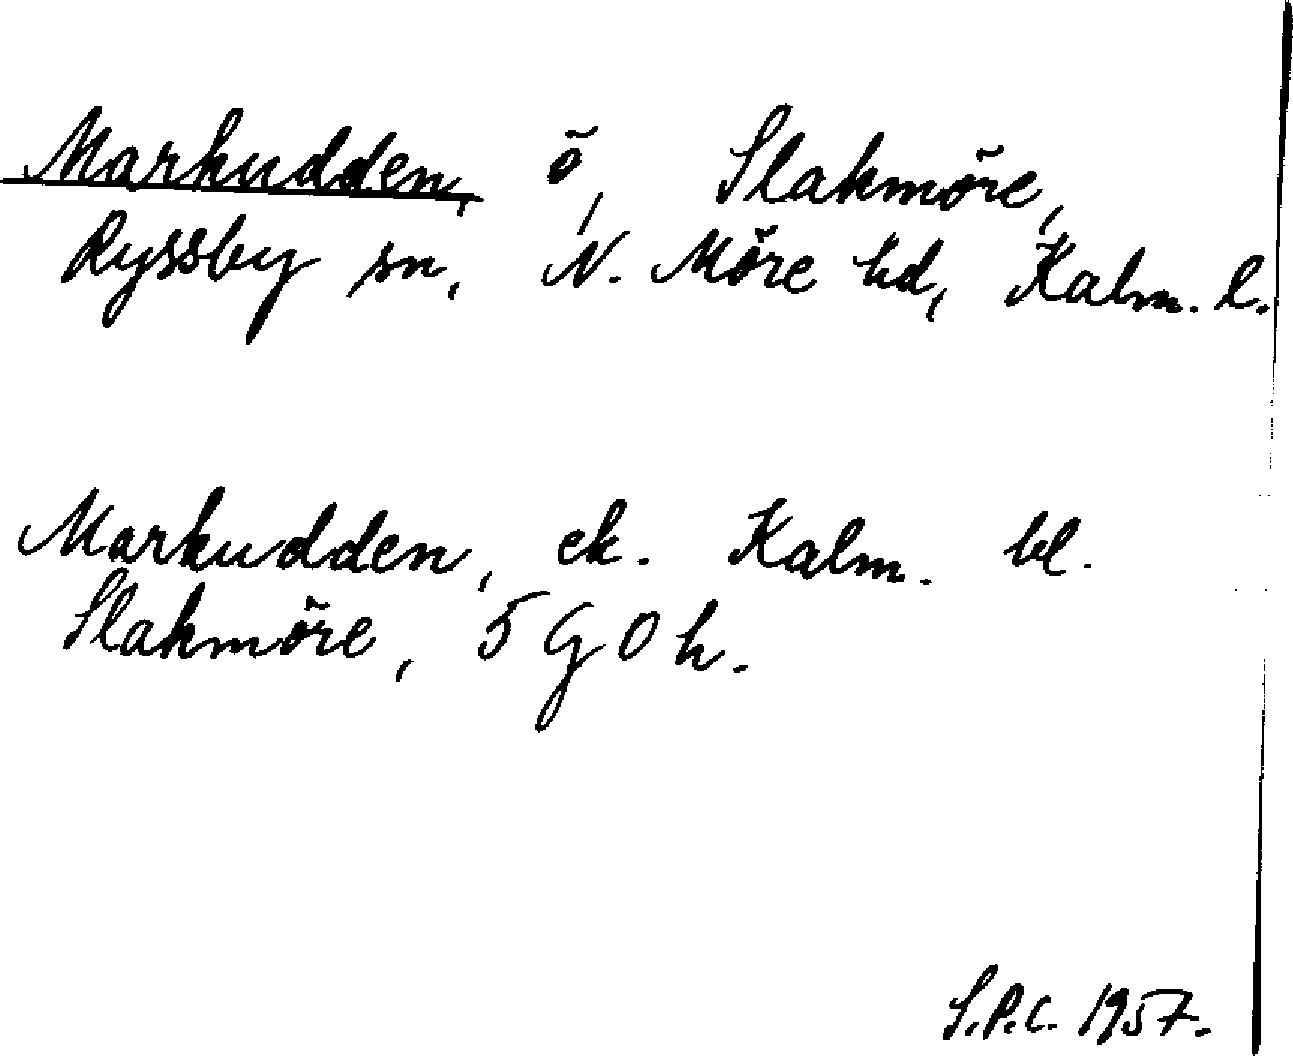 Markudden, ö, Slakmöre,
Ryssby sn, N. Möre hd, Kalm. l.
Markudden, ek. Kalm. bl.
Slakmöre, 5 G 0 h.
S.P.C. 1957.